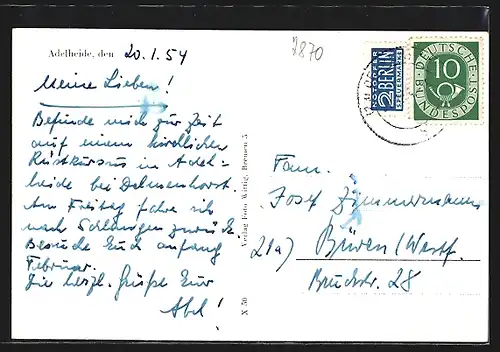 Adelheide, den 20.1.54
2870
NOTOPFER
2 BERLIN
STEUERMARKE
DEUTSCHE
10
BUNDESPOST
Meine Lieben!
Befinde mich zur Zeit
auf einem kirchlichen
Rüstkursus in Adel-
heide bei Delmenhorst.
Am Freitag fahre ich
nach Salzungen zurück.
Besuche Euch anfang
Februar.
Die herzl. Grüße Eur
Abel!
X 50 Verlag Foto Wittig, Bremen 5
Fam.
Josef Zimmermann
21a) Büren/Westf.
Bruchstr. 28